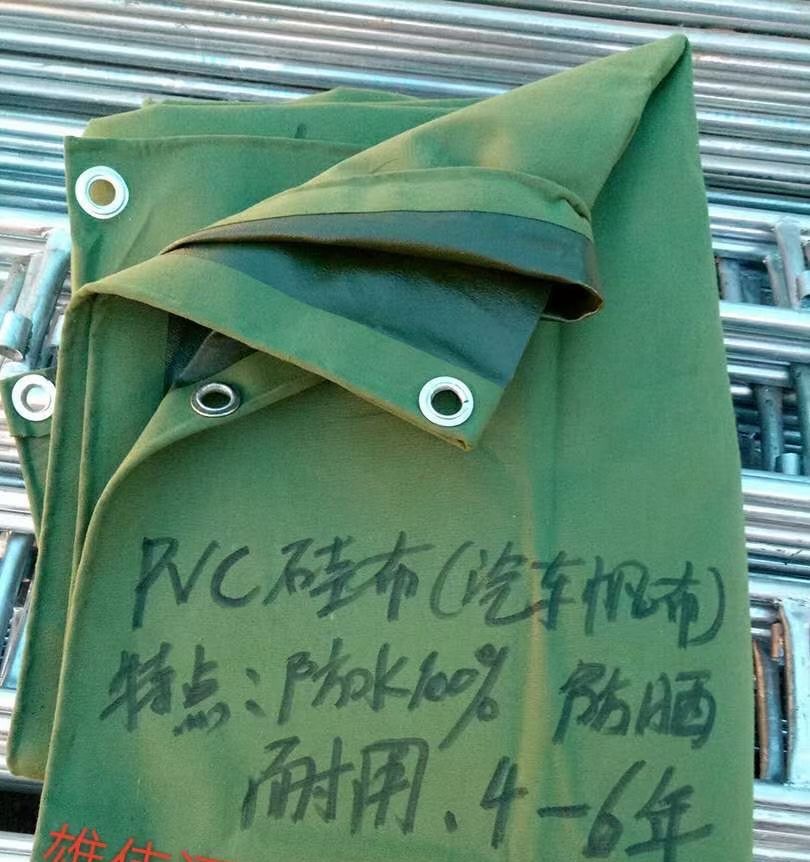 PVC硅布(汽车帆布)
特点:防水100% 防晒
耐用、4-6年
雄伟